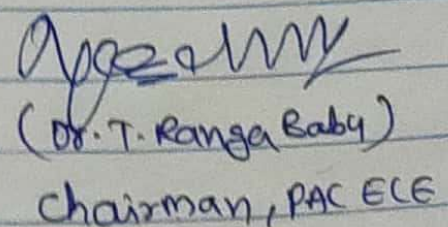 (Dr. T. Ranga Baby)
Chairman, PAC ECE